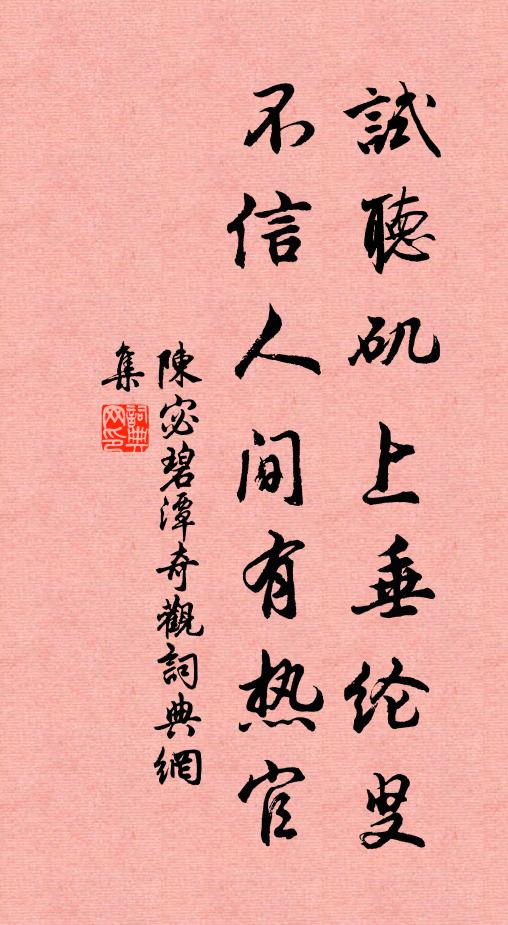 試聽矶上垂纶叟
不信人间有热官
陳宓碧潭奇觀詞典網
集
詞典
网印